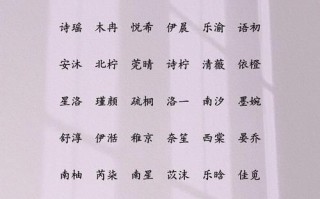 诗瑶 木冉 悦希 伊晨 乐渝 语初
安沐 北柠 莞晴 诗柠 清薇 依橙
星洛 瑾颜 疏桐 洛一 南汐 墨婉
舒淳 伊湉 雅京 奈笙 西棠 晏乔
南柚 芮柒 南星 苡沫 乐晗 佳觅